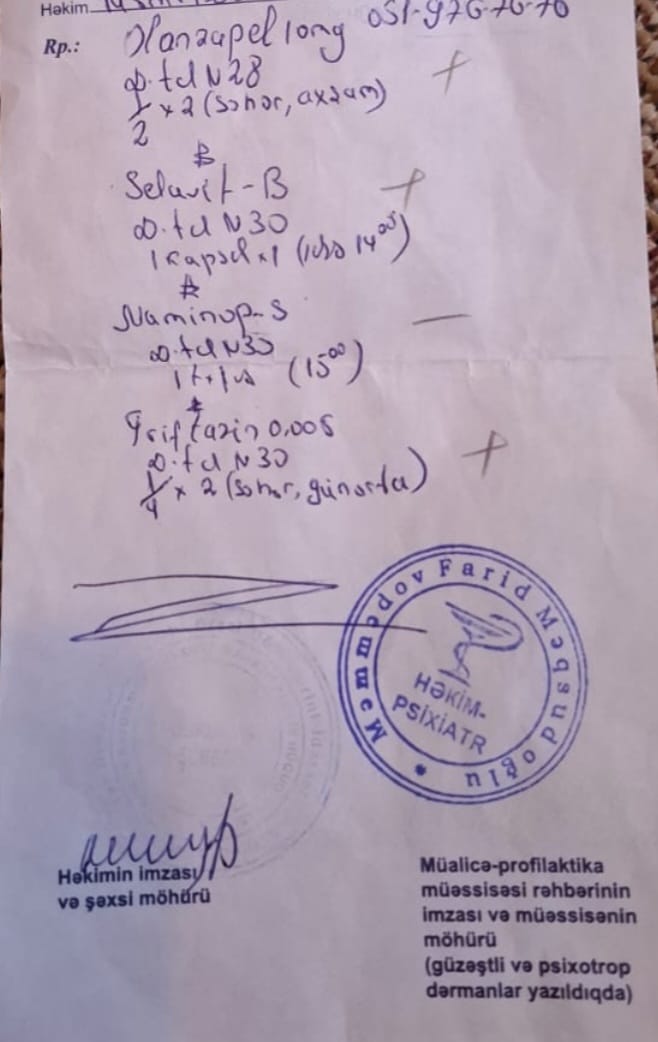 Həkim
051-976-76-76
Rp.: Olanzapel long
D.td N28
1/2 x 2 (səhər, axşam)
Selavit-B
D.td N30
1 kapsul x1 (14⁰⁰)
Naminop-S
D.td N30
(15⁰⁰)
Triftazin 0,005
D.td N30
1/4 x 2 (səhər, günorta)
Məmmədov Farid Məbsud oğlu
HƏKİM-
PSİXİATR
Həkimin imzası
və şəxsi möhürü
Müalicə-profilaktika
müəssisəsi rəhbərinin
imzası və müəssisənin
möhürü
(güzəştli və psixotrop
dərmanlar yazıldıqda)